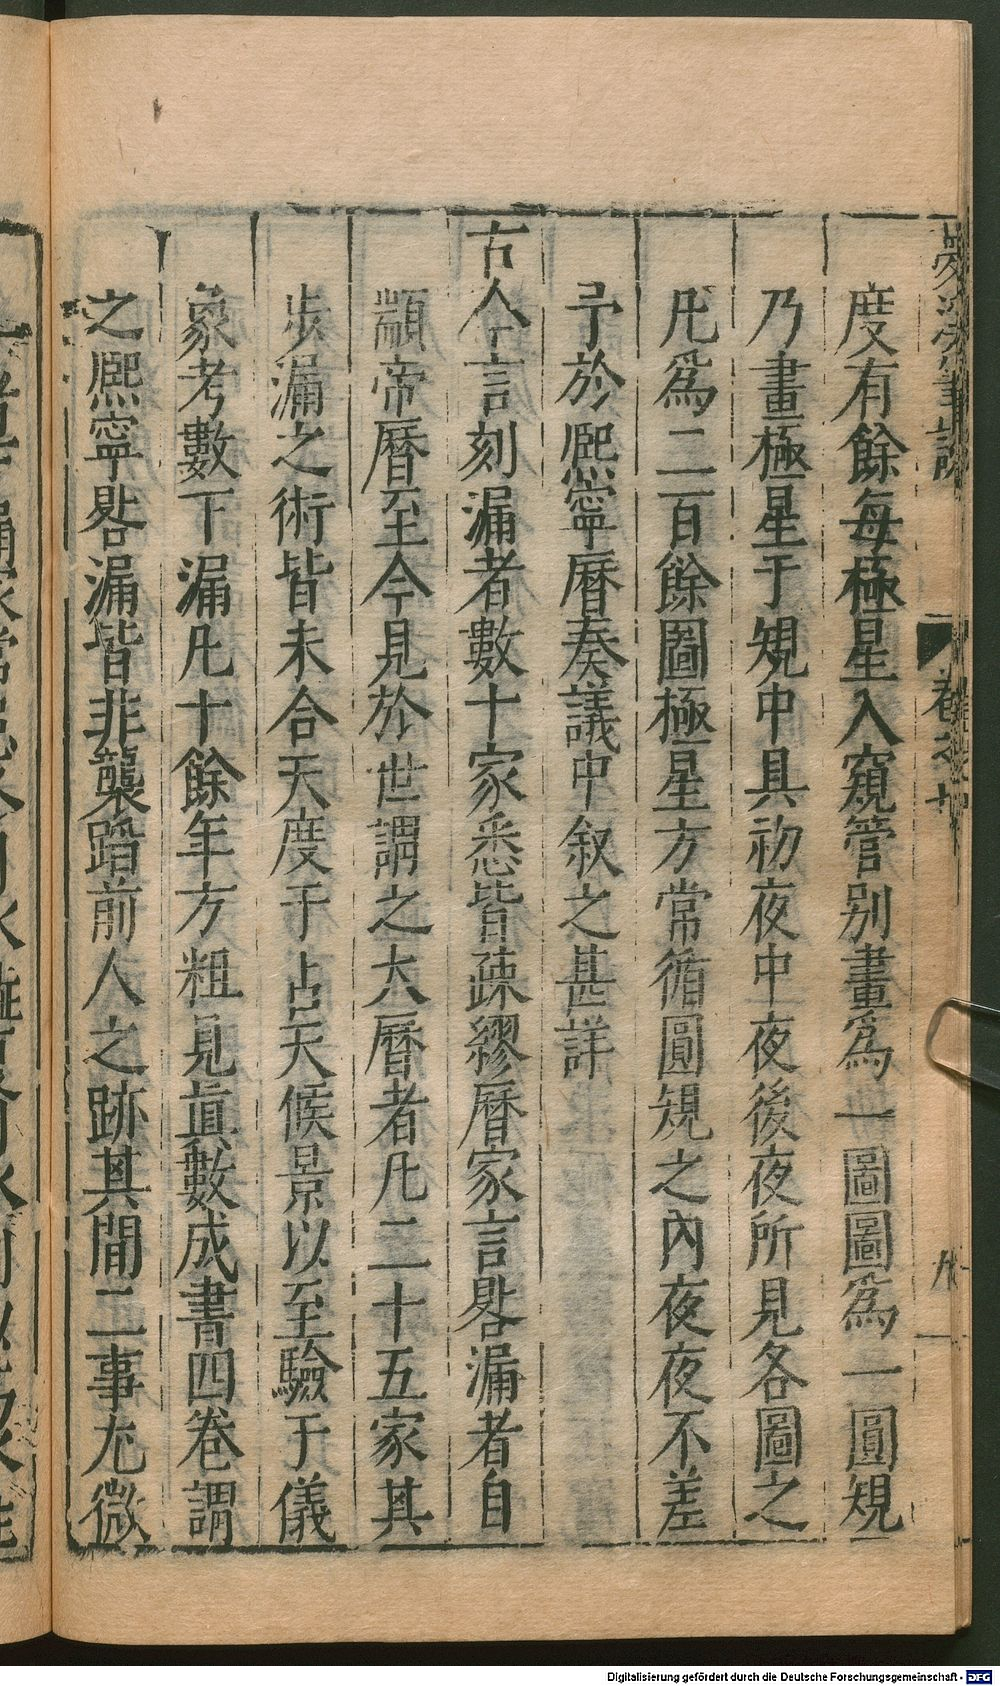 度有餘每極星入窺管别畫爲一圖圖爲一圓規
乃畫極星于規中具初夜中夜後夜所見各圖之
凡爲二百餘圖極星方常循圓規之內夜夜不差
予於熙寧曆奏議中叙之甚詳
古人言刻漏者數十家悉皆疎繆曆家言晷漏者自
顓帝曆至今見於世謂之大曆者凡二十五家其
步漏之術皆未合天度予占天候景以至驗于儀
象考數下漏凡十餘年方粗見眞數成書四卷謂
之熙寧晷漏皆非襲蹈前人之跡其間二事尤微
卷之
九
Digitalisierung gefördert durch die Deutsche Forschungsgemeinschaft - DFG